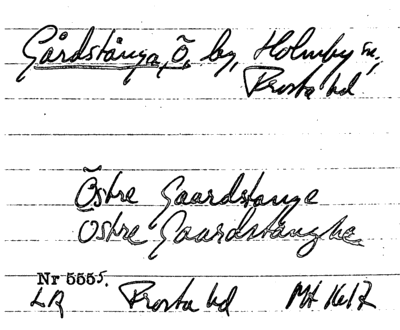 Gårdstånga, Ö, by, Holmby sn,
Frosta hd
Östre Gaardstange
Östre Gaardstånghe
Nr 5555.
LR Frosta hd Mt 1612